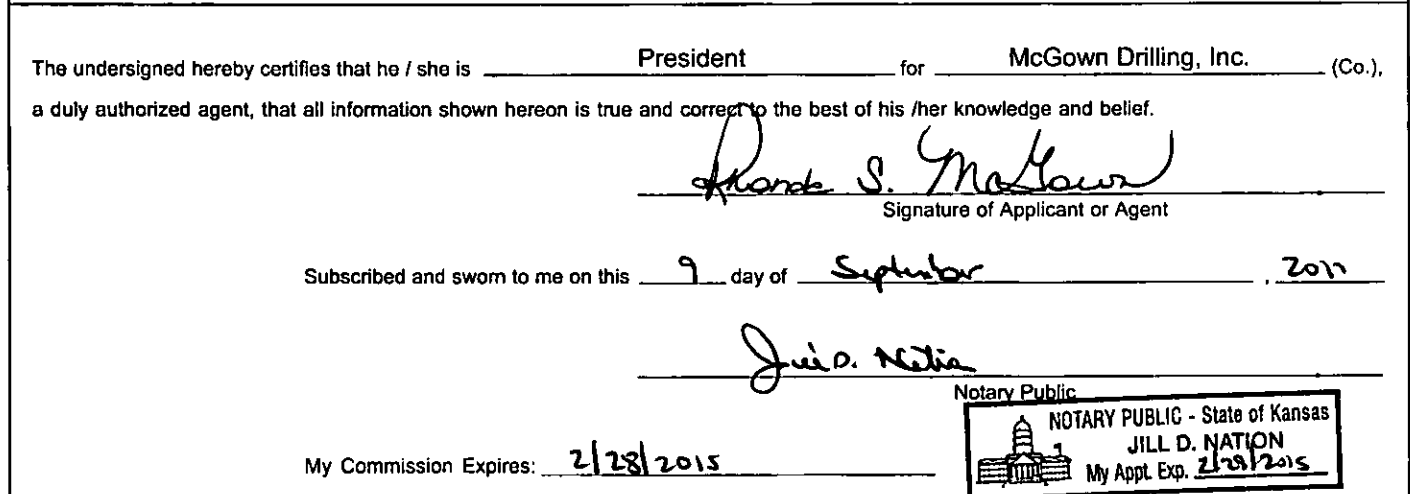 The undersigned hereby certifies that he / she is President for McGown Drilling, Inc. (Co.),
a duly authorized agent, that all information shown hereon is true and correct to the best of his /her knowledge and belief.
Rhonda S. McGown
Signature of Applicant or Agent
Subscribed and sworn to me on this 9 day of September , 2011
Jill D. Nation
Notary Public
NOTARY PUBLIC - State of Kansas
JILL D. NATION
My Appt. Exp. 2/28/2015
My Commission Expires: 2/28/2015